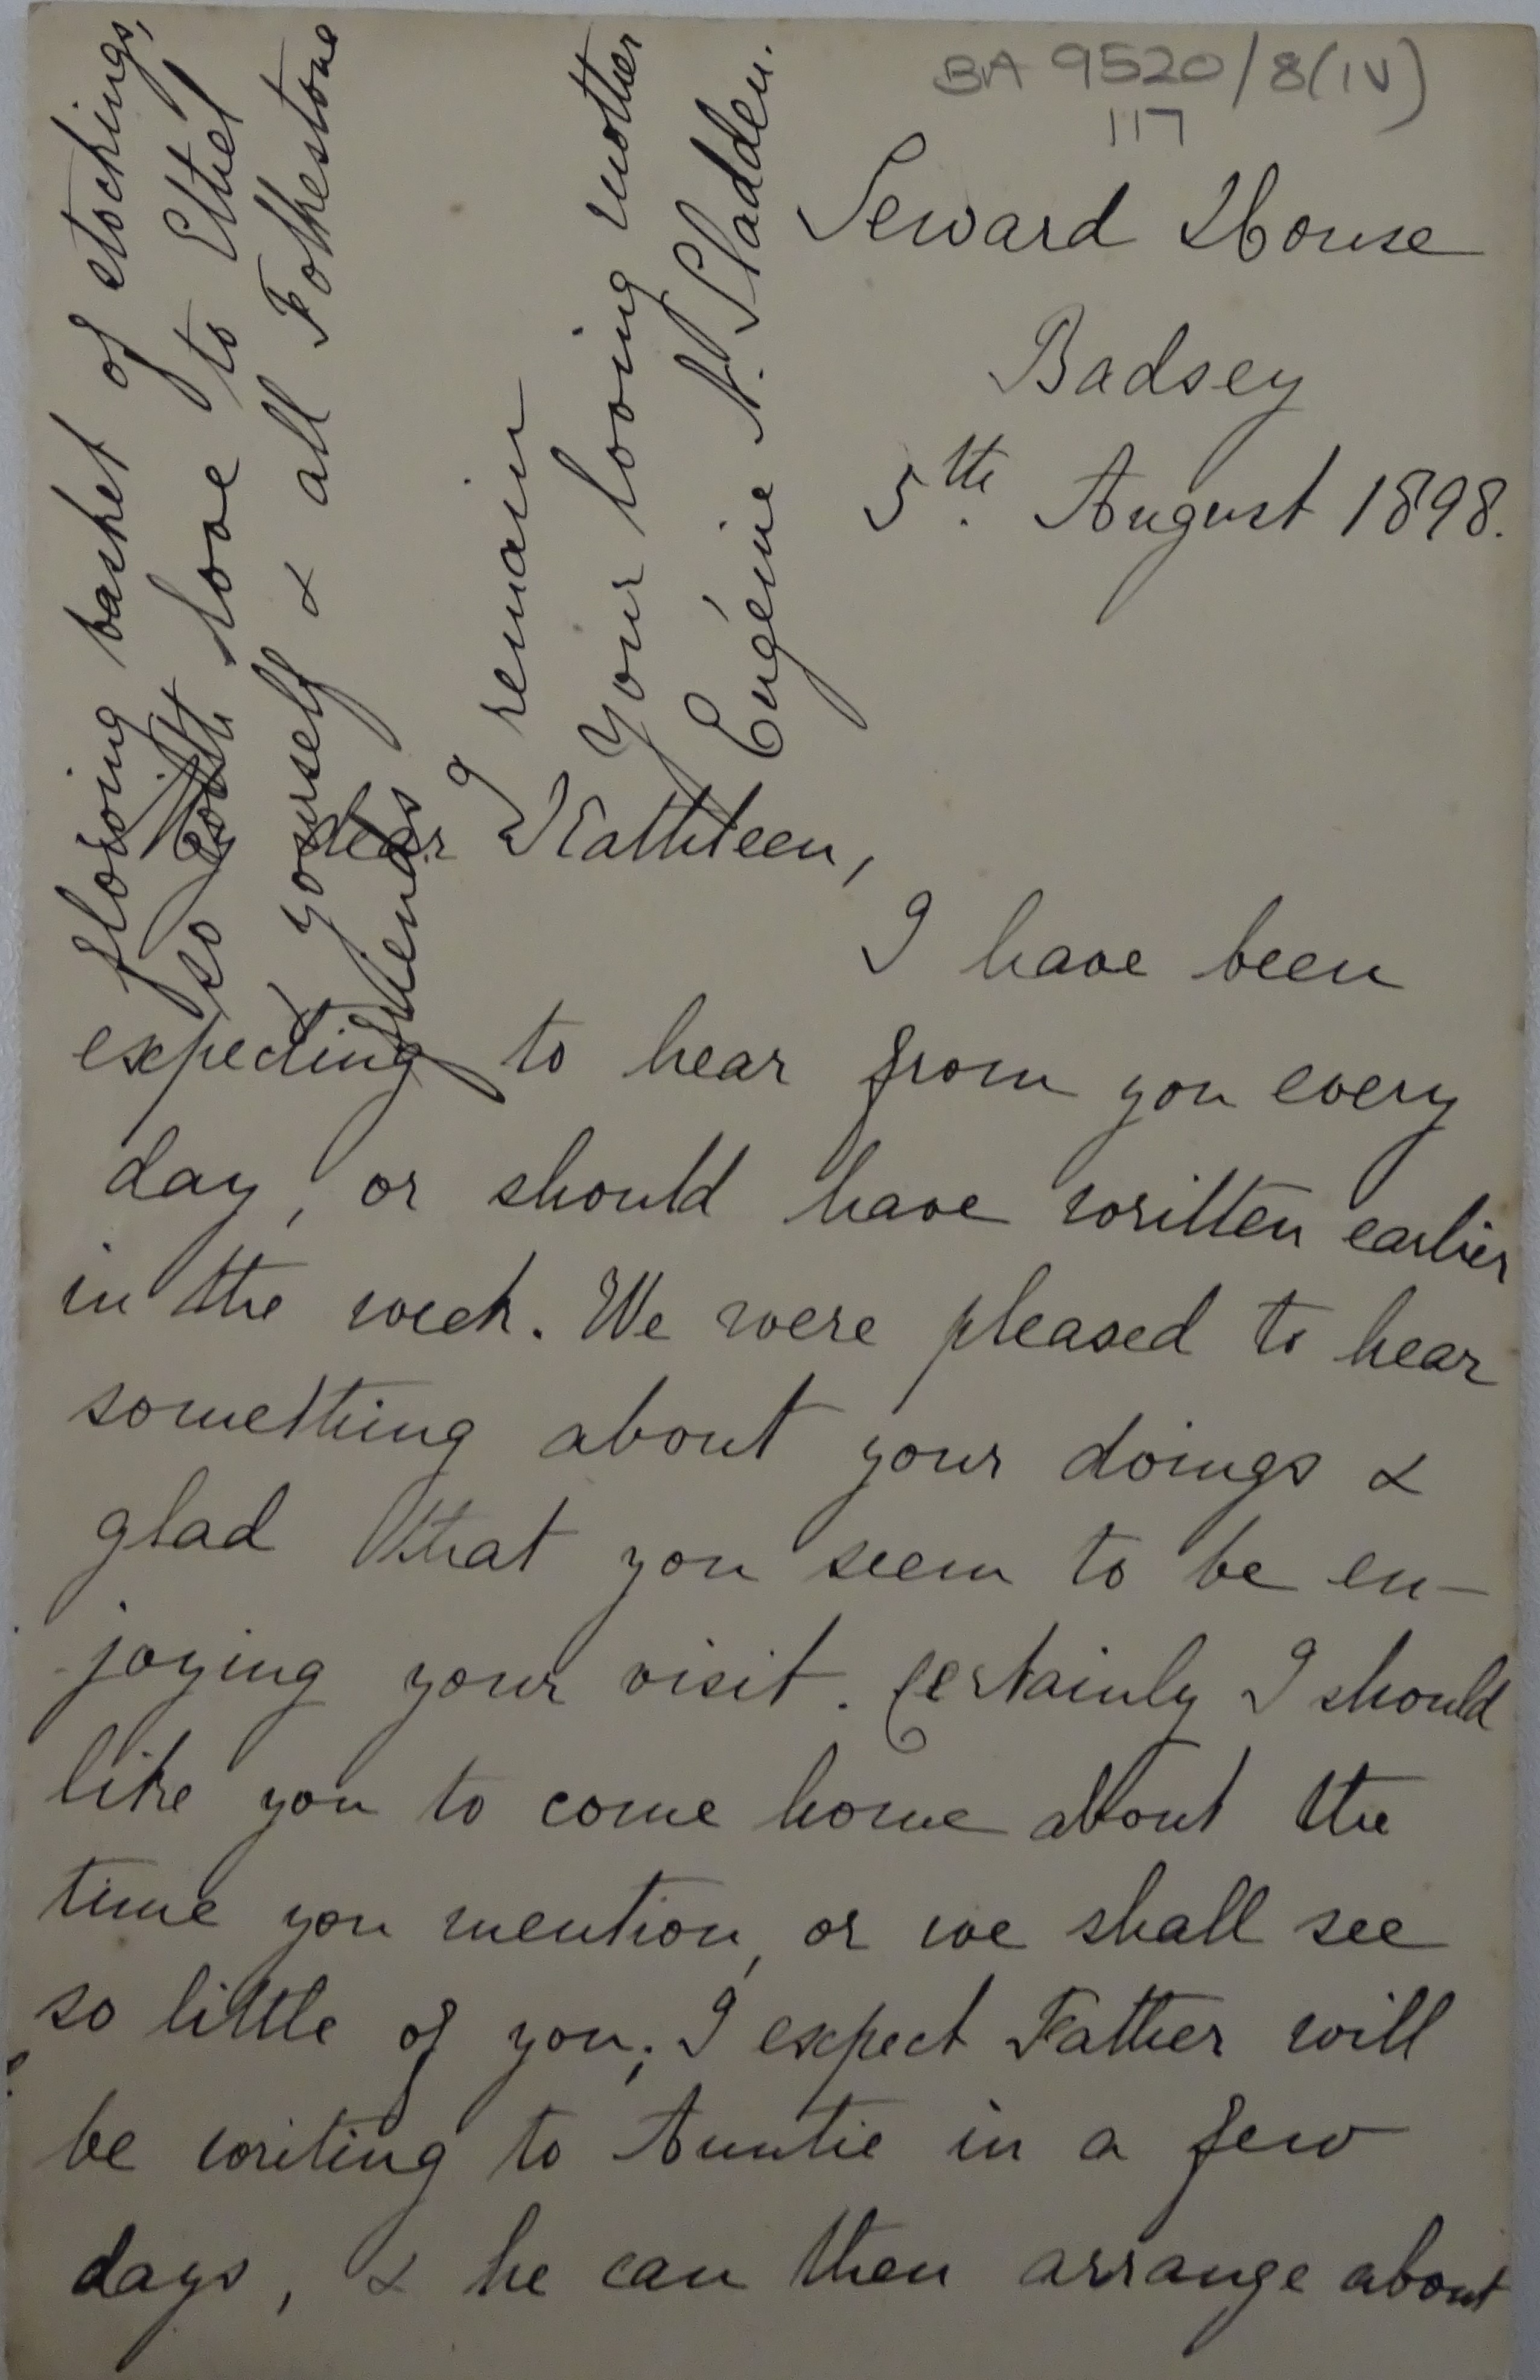 BA 9520/8(IV)
117
Seward House
Badsey
5th. August 1898.
My dear Kathleen,
I have been
expecting to hear from you every
day, or should have written earlier
in the week. We were pleased to hear
something about your doings &
glad that you seem to be en-
joying your visit. Certainly I should
like you to come home about the
time you mention, or we shall see
so little of you; I expect Father will
be writing to Auntie in a few
days, & he can then arrange about
flowing basket of stockings,
so with love to Ethel
yourself & all Folkestone
friends
I remain
Your loving mother
Eugénie N. Sladden.